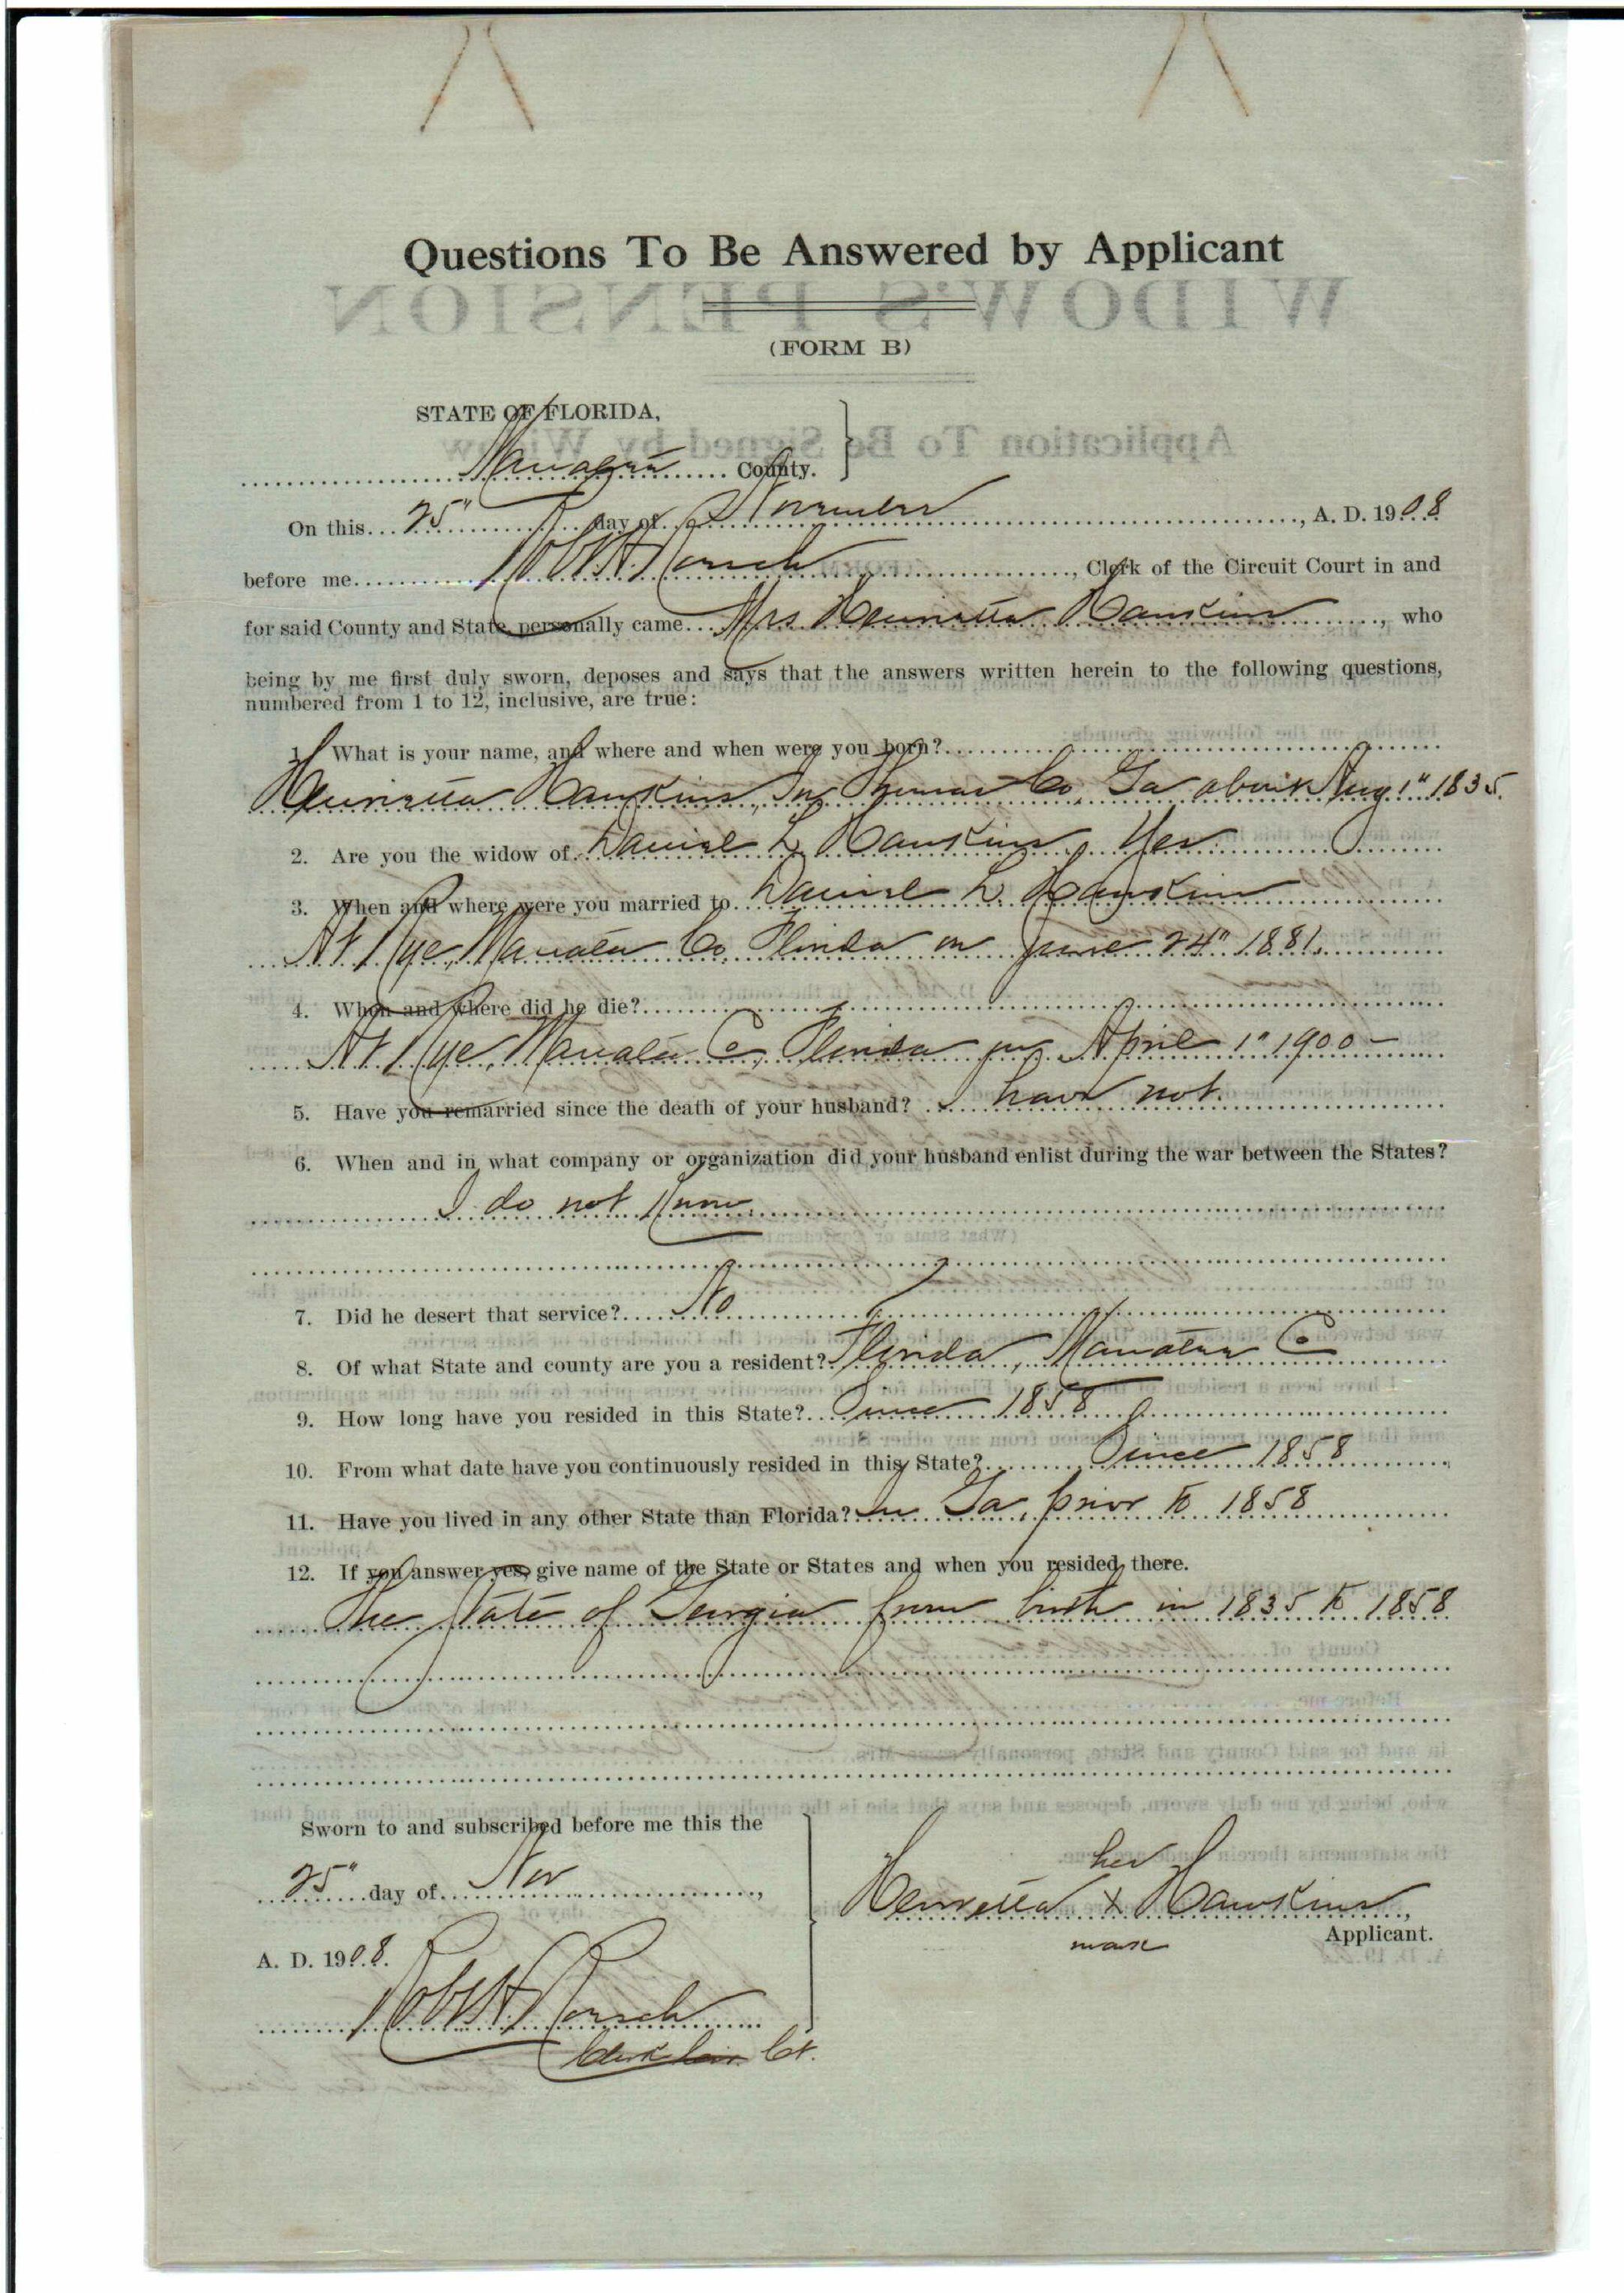 Questions To Be Answered by Applicant
WIDOW'S PENSION
(FORM B)
STATE OF FLORIDA,
Application To Be Signed by Widow
Manatee County.
On this 25" day of November, A. D. 1908
before me Robt H. Roesch, Clerk of the Circuit Court in and
for said County and State, personally came Mrs Henrietta Hawkins, who
being by me first duly sworn, deposes and says that the answers written herein to the following questions,
numbered from 1 to 12, inclusive, are true:
1. What is your name, and where and when were you born?
Henrietta Hawkins, In Thomas Co, Ga about Aug 1" 1835.
2. Are you the widow of Daniel L Hawkins Yes
3. When and where were you married to Daniel L. Hawkins
At Rye, Manatee Co Florida on June 24" 1881.
4. When and where did he die?
At Rye, Manatee Co, Florida on April 1" 1900 -
5. Have you remarried since the death of your husband? I have not.
6. When and in what company or organization did your husband enlist during the war between the States?
I do not Know.
7. Did he desert that service? No
8. Of what State and county are you a resident? Florida, Manatee Co
9. How long have you resided in this State? Since 1858
10. From what date have you continuously resided in this State? Since 1858
11. Have you lived in any other State than Florida? In Ga, prior to 1858
12. If you answer yes, give name of the State or States and when you resided there.
The State of Georgia from birth in 1835 to 1858
Sworn to and subscribed before me this the
25" day of Nov,
her
Henrietta X Hawkins,
mark
Applicant.
A. D. 1908.
Robt H. Roesch
Clerk Cir. Ct.